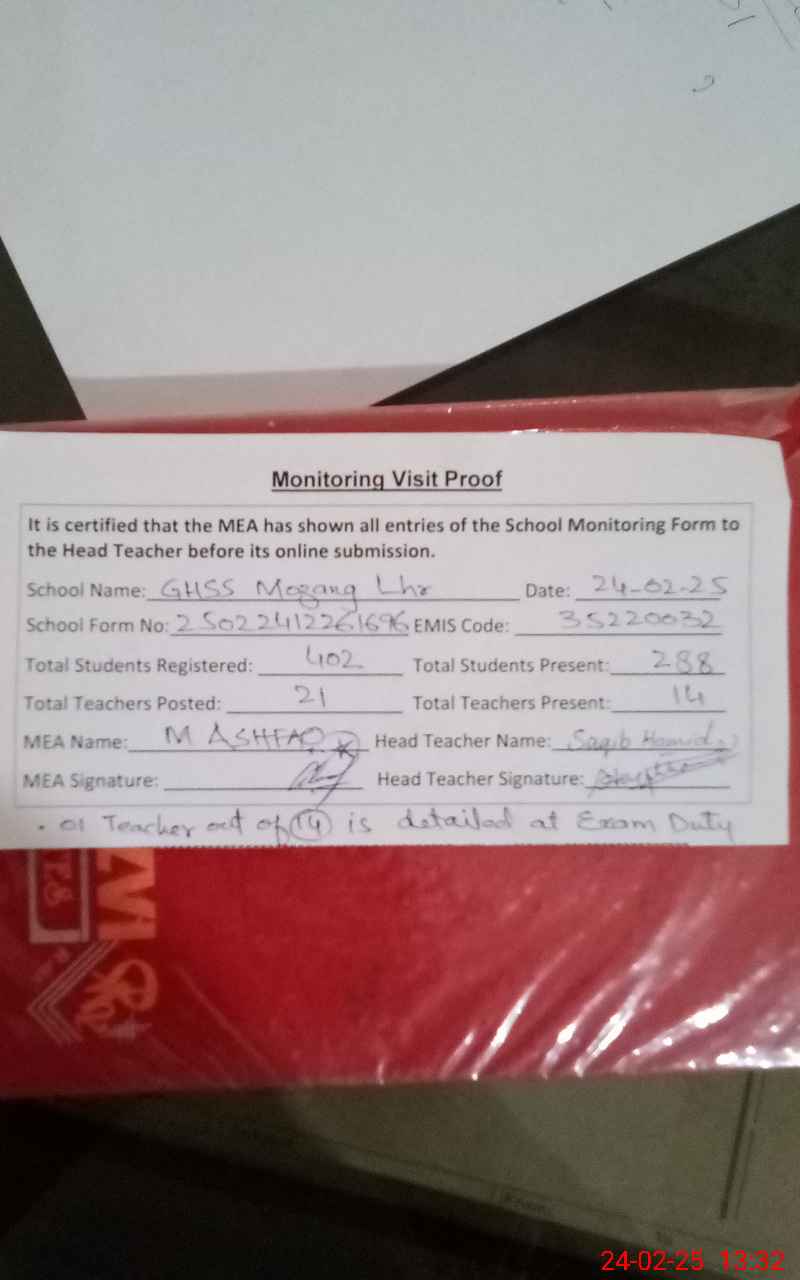 Monitoring Visit Proof
It is certified that the MEA has shown all entries of the School Monitoring Form to
the Head Teacher before its online submission.
School Name: GHSS Mozang Lhr Date: 24-02-25
School Form No: 25022412261696 EMIS Code: 35220032
Total Students Registered: 402 Total Students Present: 288
Total Teachers Posted: 21 Total Teachers Present: 14
MEA Name: M ASHFAQ Head Teacher Name: Saqib Hamid
MEA Signature: Head Teacher Signature:
• 01 Teacher out of 14 is detailed at Exam Duty
24-02-25 13:32